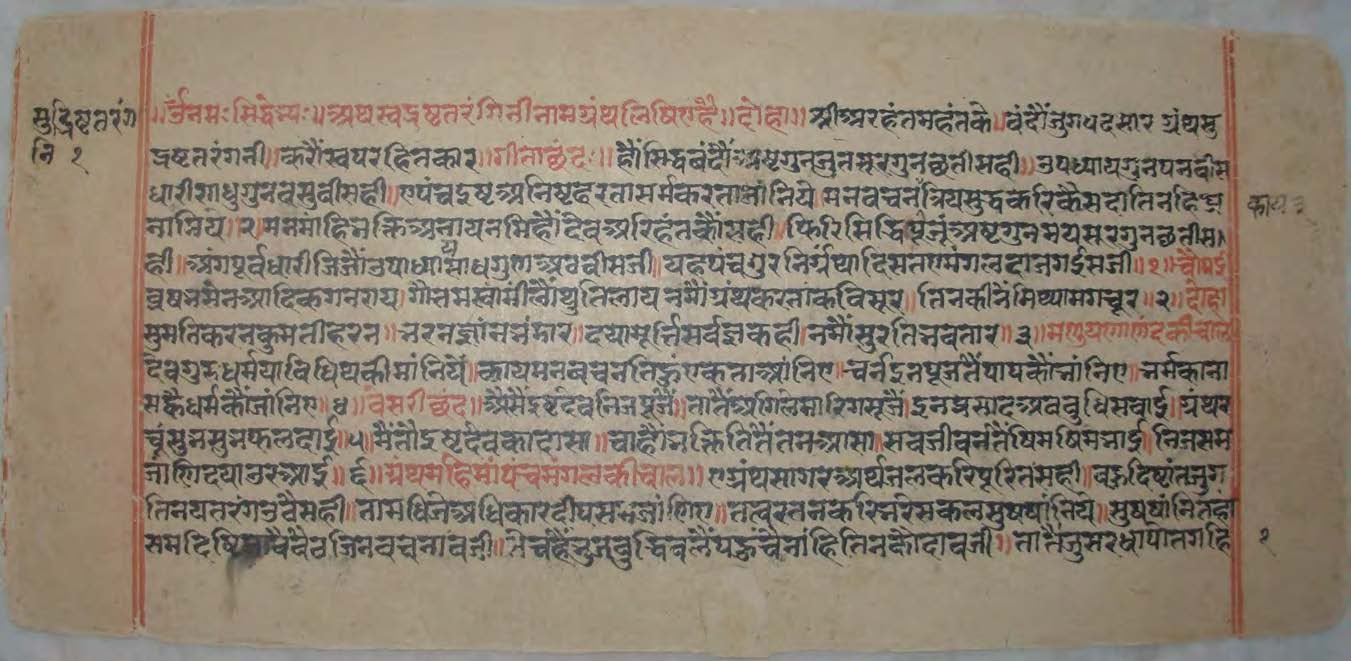 सुद्रिष्टतरंग
नि १
॥ र्उनमः सिद्धेभ्यः ॥ अथ स्वद्रष्टतरंगिनी नाम ग्रंथ लिषिए है ॥ दोहा ॥ श्री अरहंत महंत कै ॥ वंदौं जुगपद सार ग्रंथ सु
द्रष्टतरंगनी ॥ करौं स्वपर हितकार ॥ गीता छंद ॥ हौं सिद्ध वंदौं अष्टगुन जुत सूर गुन छतीस ही ॥ उपध्याय गुन पनवीस
धारी साधु गुन वसुवीस ही ॥ ए पंच इष्ट अनिष्ट हरता सर्म करता जांनिये ॥ मन वचन त्रिय सुद्ध करिकै सदा तिन हि
नानिय ॥ १ मन मांहि भक्ति अनाय नमि हौं देव अरिहंत कौं सही ॥ फिरि सिद्ध पूजूं अष्टगुनमय सूर गुन छतीस
ही ॥ अंग पूर्व धारी जिजौं उपाध्या साध गुण अठवीस जी ॥ यह पंच गुर निर्ग्रंथ आदि सत ए मंगल दाज गईस जी ॥ १ ॥ चौपई
व्रषभसैन आदिक गनराय ॥ गौतम स्वामी लौं थुति लाय नमौं ग्रंथ करता कवि सूर ॥ तिनकी नैं मिथ्यामग चूर ॥ २ ॥ दोहा
सुमति करन कुमती हरन ॥ नरनद्यांन नंदार ॥ दया मूर्त्ति सर्वज्ञ कही ॥ नमौं सुर तिन वतार ॥ ३ ॥ की चाल
देव गुर धर्म या विधि थकी मांनियें ॥ काय मन वचन तिहुं एकता आंनिए ॥ चर्न इन पूजतैं पाप कौं भांनिए ॥ भर्मका ना
सहै धर्म कौं जांनिए ॥ ४ ॥ वेसरी छंद ॥ अैसें इष्टदेव निज पूजै ॥ तातैं अगिल मारिग सूजै ॥ इन प्रसाद अव वुधि सवाई ॥ ग्रंथ र
चूं सुभ सुभ फल दाई ॥ ५ ॥ मैं नौ इष्टदेव का दासा ॥ चाहौं भक्ति तितैं तम आसा ॥ सव जीवनतैं षिम षिम भाई ॥ जिन सम
जांणि दया उर आई ॥ ६ ॥ ग्रंथ महिमा पंचमंगल की चाल ॥ ए ग्रंथ सागर अर्थ जल करि पूरित सही ॥ वहु दिष्टांत जुग
ति नय तरंग उठैं सही ॥ तामधि जे अधिकार दीप सम जांणिए ॥ तत्व रतन करि भरे सकल सुषषांनिये ॥ सुषषांनि तहा
सम दिष्टि जिन वच नाव जी ॥ वुद्धि वलैं पहुंचै नांहि तिनकौ दाव जी ॥ तातैं जु सरधा पोत गहि
१